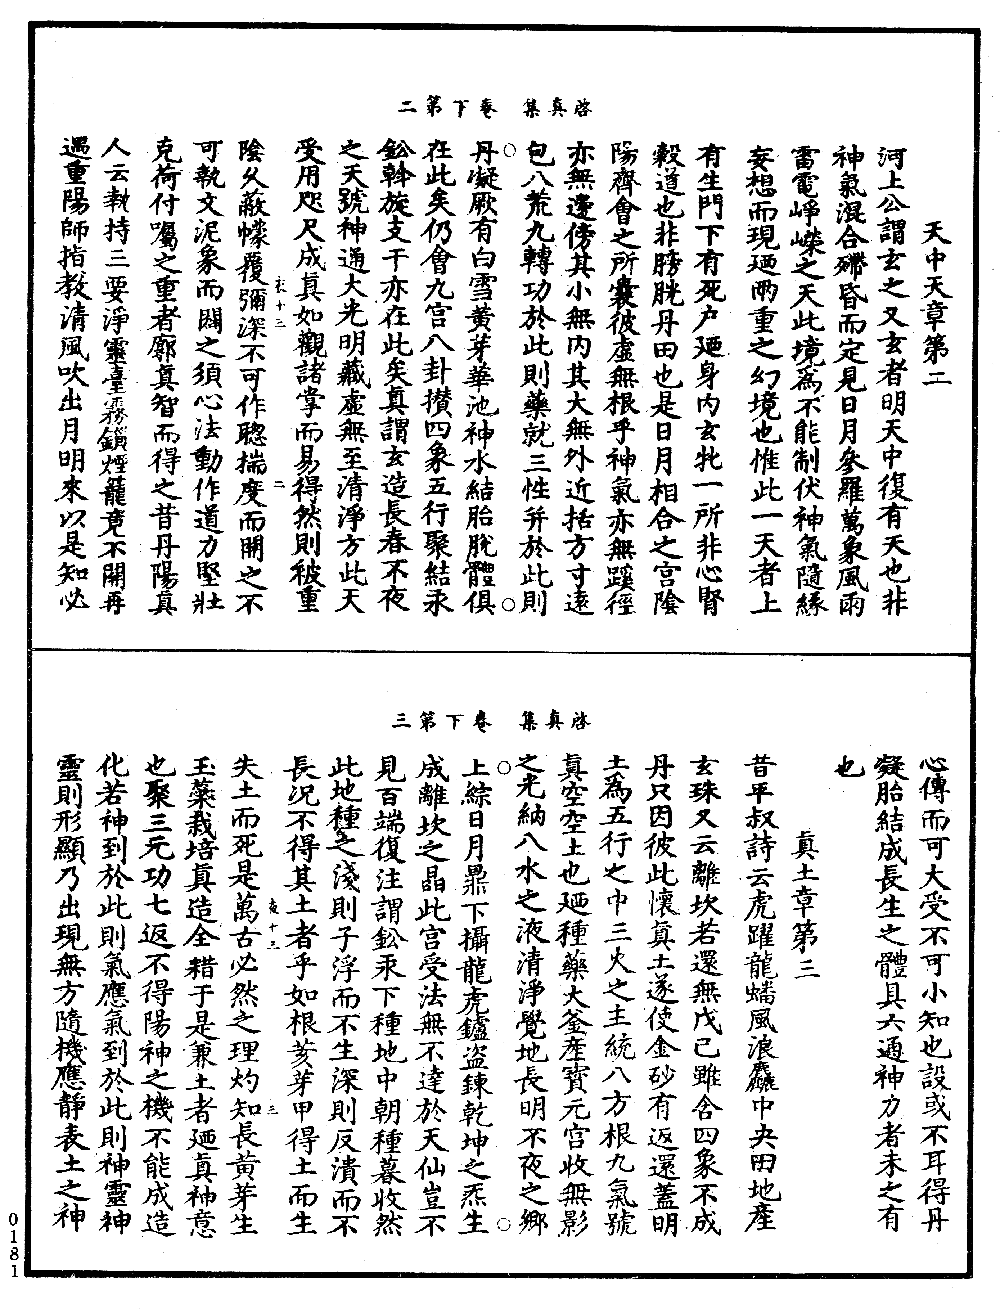 啓真集　卷下第二
天中天章第二
河上公謂玄之又玄者明天中復有天也非
神氣混合殢昏而定見日月參羅萬象風雨
雷電崢嶸之天此境為不能制伏神氣隨緣
妄想而現廼兩重之幻境也惟此一天者上
有生門下有死户廼身内玄牝一所非心腎
穀道也非膀胱丹田也是日月相合之宫陰
陽齊會之所囊彼虚無根乎神氣亦無蹊徑
亦無邊傍其小無内其大無外近括方寸遠
包八荒九轉功於此則藥就三性并於此則
丹凝厥有白雪黄芽華池神水結胎脱體俱
在此矣仍會九宫八卦攅四象五行聚結汞
鈆斡旋支干亦在此矣真謂玄造長春不夜
之天號神通大光明藏虚無至清淨方此天
受用咫尺成真如觀諸掌而易得然則被重
衣十三　二
陰久蔽幪覆彌深不可作聰揣度而開之不
可執文泥象而闊之須心法動作道力堅壯
克荷付囑之重者廓真智而得之昔丹陽真
人云執持三要淨靈臺霧鎖煙籠竟不開再
遇重陽師指教清風吹出月明來以是知必
啓真集　卷下第三
心傳而可大受不可小知也設或不耳得丹
凝胎結成長生之體具六通神力者未之有
也
真土章第三
昔平叔詩云虎躍龍蟠風浪麤中央田地産
玄珠又云離坎若還無戊己雖含四象不成
丹只因彼此懷真土遂使金砂有返還蓋明
土為五行之中三火之主統八方根九氣號
真空空土也廼種藥大釜産寶元宫收無影
之光納八水之液清淨覺地長明不夜之鄉
上綜日月鼎下攝龍虎鑪盗鍊乾坤之炁生
成離坎之晶此宫受法無不達於天仙豈不
見百端復注謂鈆汞下種地中朝種暮收然
此地種之淺則子浮而不生深則反潰而不
長況不得其土者乎如根荄芽甲得土而生
衣十三　三
失土而死是萬古必然之理灼知長黄芽生
玉蘂栽培真造全耤于是兼土者廼真神意
也聚三元功七返不得陽神之機不能成造
化若神到於此則氣應氣到於此則神靈神
靈則形顯乃出現無方隨機應靜表土之神
0181